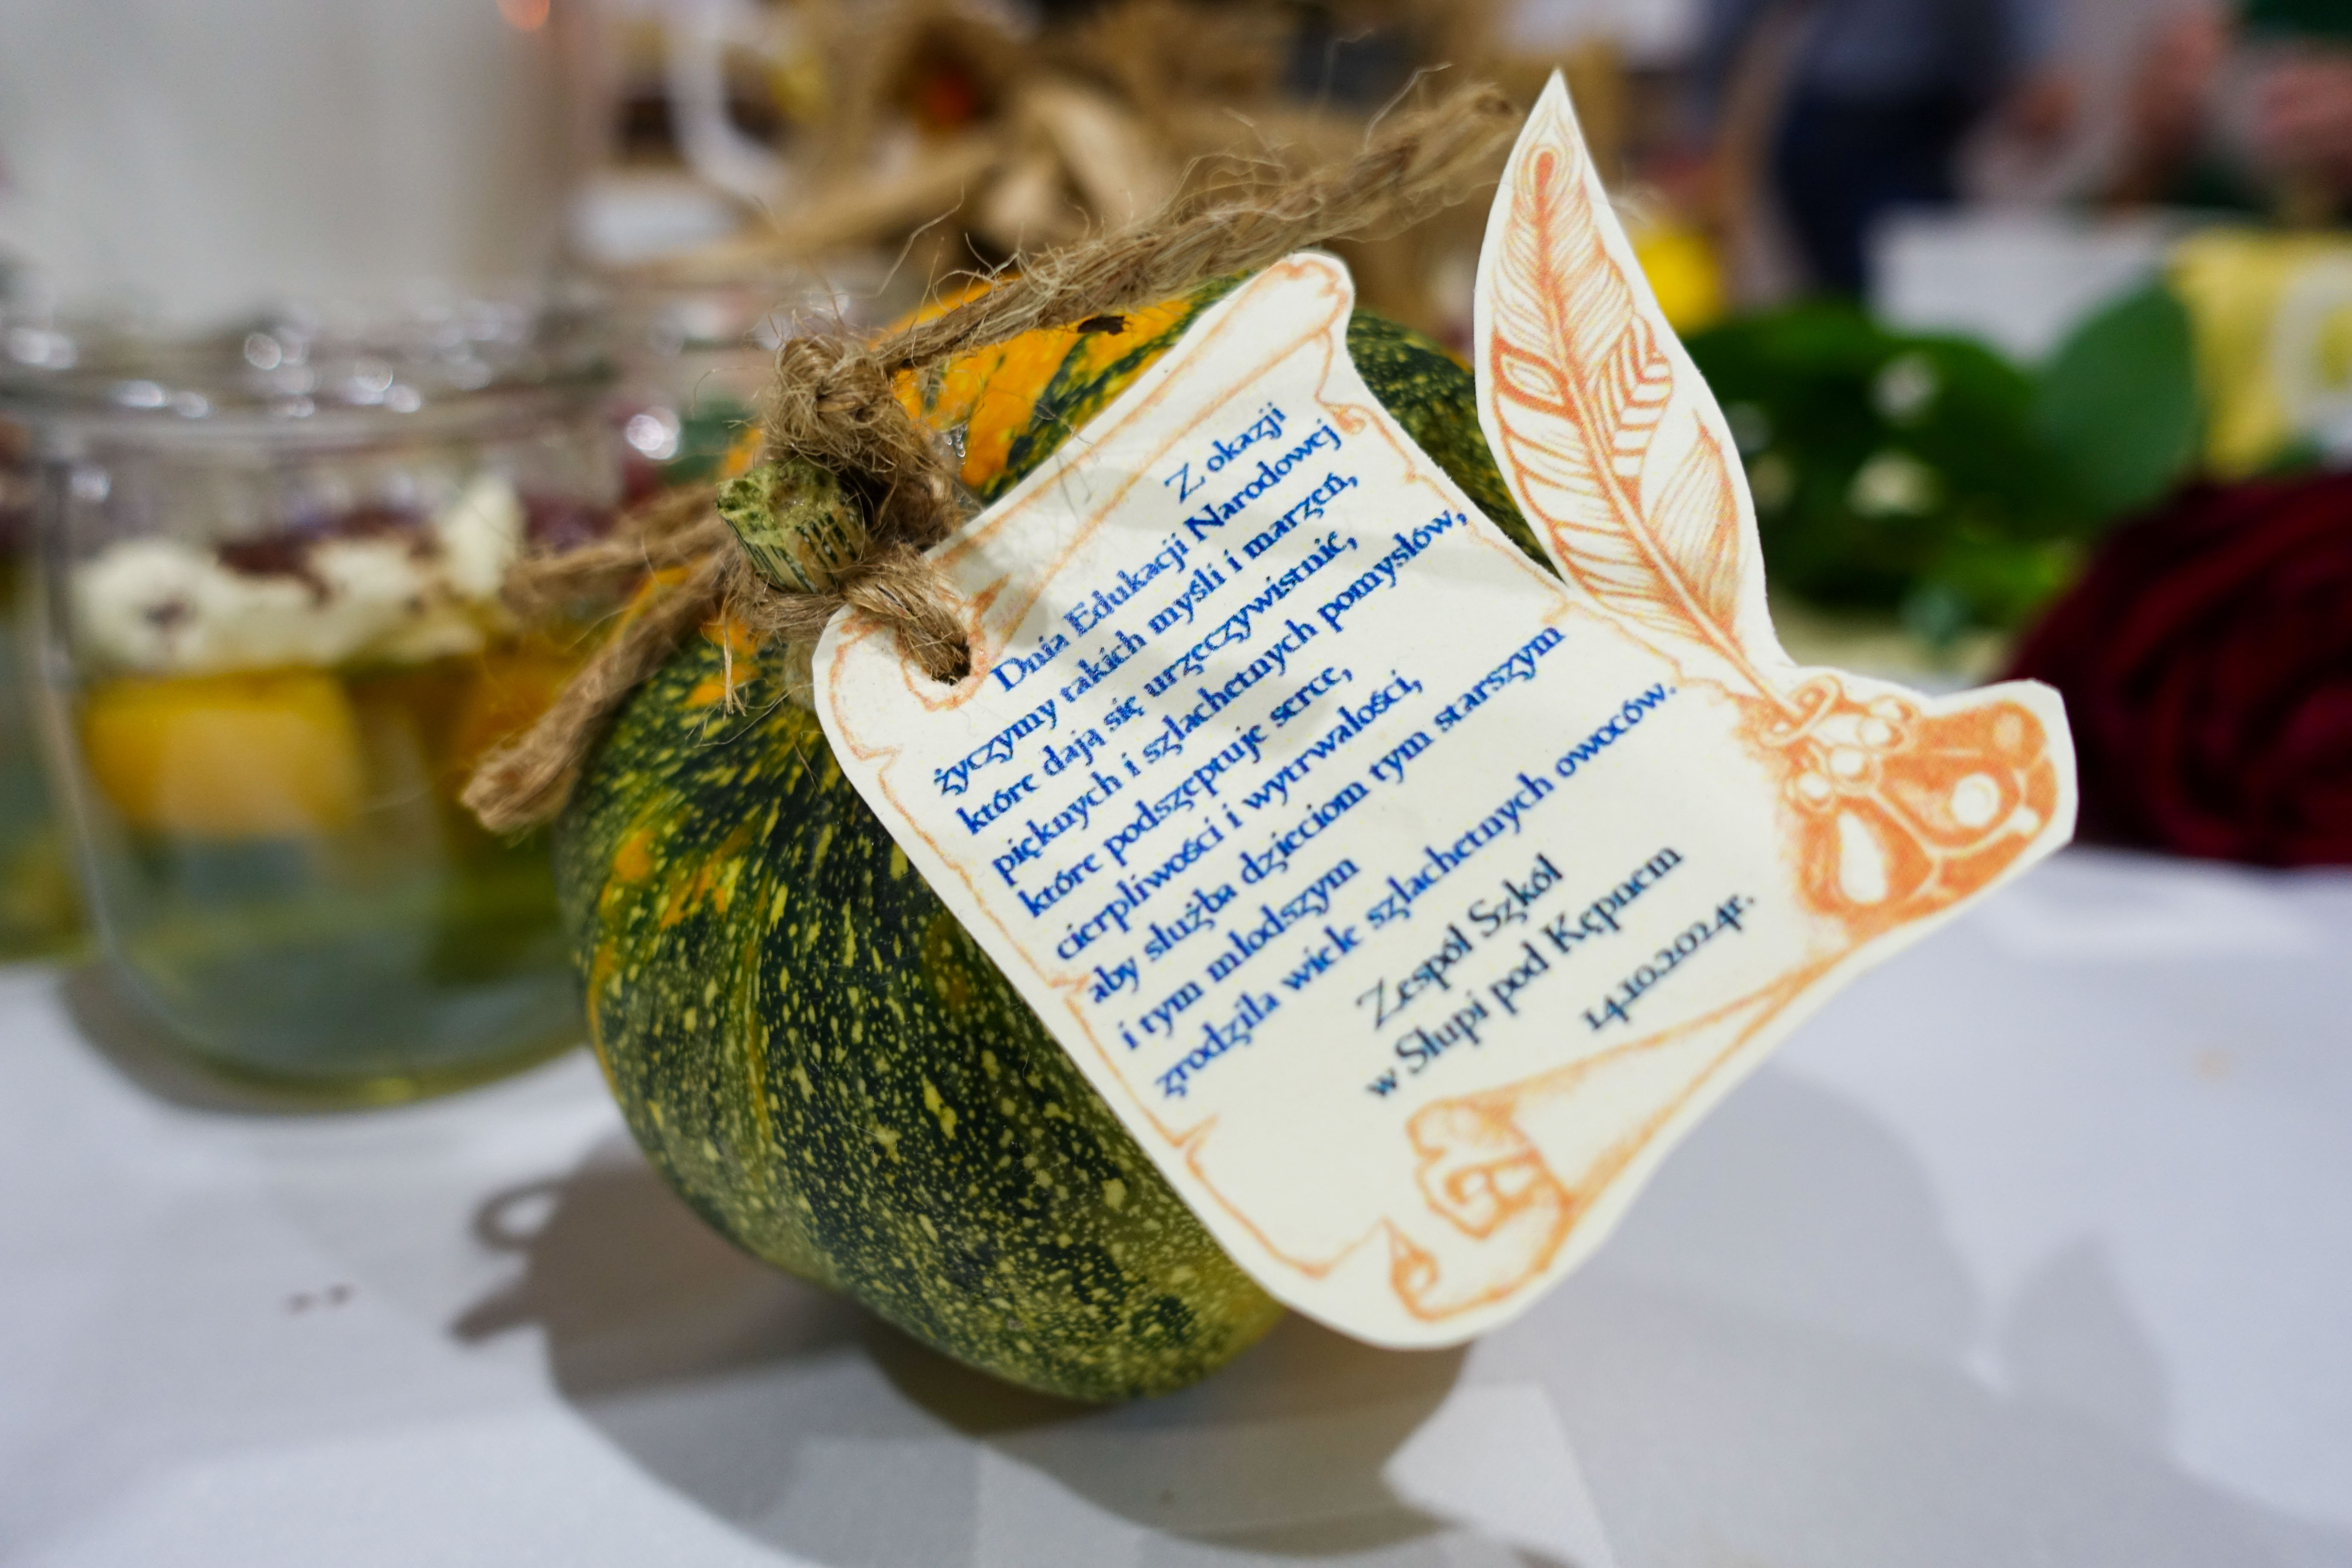 Z okazji
Dnia Edukacji Narodowej
życzymy takich myśli i marzeń,
które dają się urzeczywistnić,
pięknych i szlachetnych pomysłów,
które podszeptuje serce,
cierpliwości i wytrwałości,
aby służba dzieciom tym starszym
i tym młodszym
zrodziła wiele szlachetnych owoców.
Zespół Szkół
w Słupi pod Kępnem
14.10.2024r.